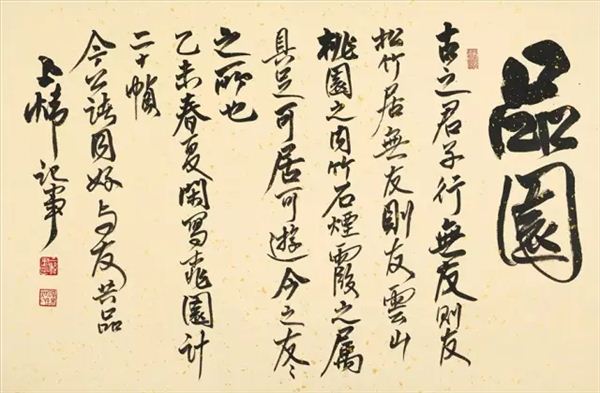 品園
古之君子行無友則友
松竹居無友則友雲山
桃園之内竹石煙霞之屬
具足可居可遊今之友々
之所也
乙未春夏閑寫桃園計
二十幀
今公諸同好与友共品
記事